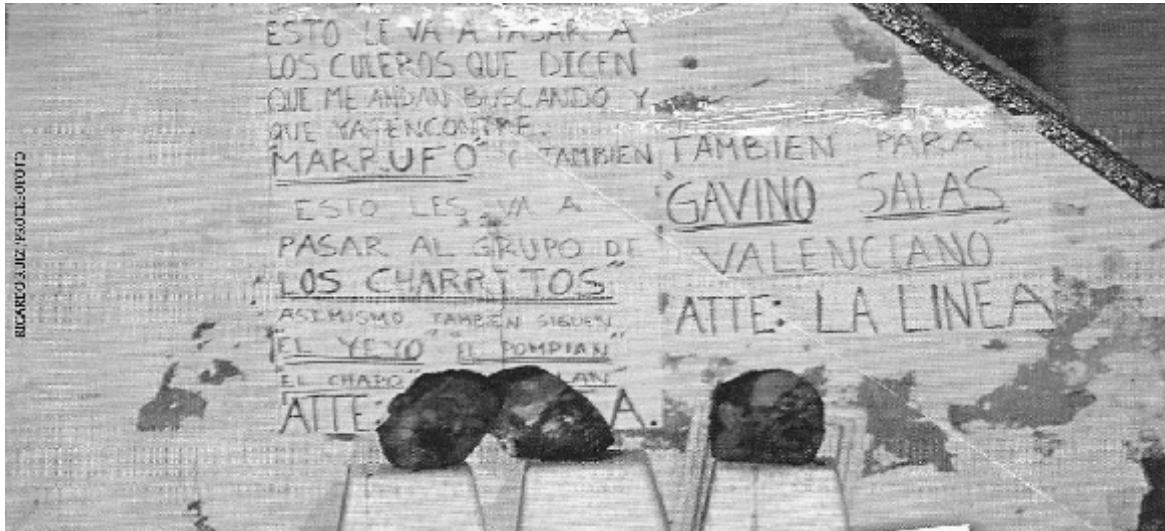 ESTO LE VA A PASAR A
LOS CULEROS QUE DICEN
QUE ME ANDAN BUSCANDO Y
QUE YA ENCONTRE.
"MARRUFO" Y TAMBIEN
ESTO LES VA A
PASAR AL GRUPO DE
"LOS CHARRITOS"
ASIMISMO TAMBIEN SIGUEN
"EL YEYO" "EL POMPIAN"
"EL CHAPO"
ATTE: A.
TAMBIEN PARA
"GAVINO SALAS
VALENCIANO"
ATTE: LA LINEA
RICARDO RUIZ/PROCESOFOTO